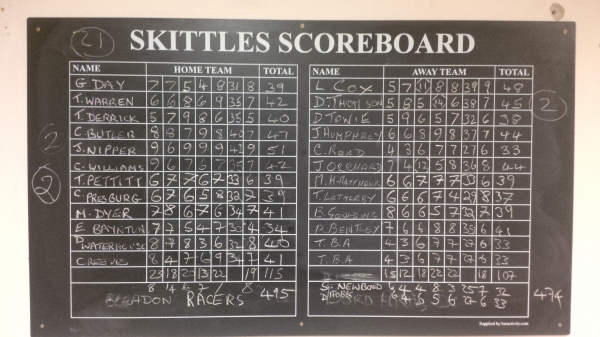 21
SKITTLES SCOREBOARD
NAME HOME TEAM TOTAL
G. DAY 7 7 5 4 8 31 8 39
T. WARREN 6 6 8 6 9 35 7 42
T. DERRICK 5 7 9 8 6 35 5 40
C. BUTLER 8 8 7 9 8 40 7 47
J. NIPPER 9 6 9 9 9 42 9 51
C. WILLIAMS 9 6 7 6 7 35 7 42
T. PETTITT 6 7 7 6 7 33 6 39
C PRESBURG 6 7 6 5 8 32 7 39
M. DYER 7 8 6 7 6 34 7 41
E. BAYNTUN 7 7 5 4 7 30 4 34
D WATERHOUSE 8 7 8 3 6 32 8 40
C REEVES 8 4 7 6 9 34 7 41
23 18 20 13 22 19 115
BLEADON RACERS 495
NAME AWAY TEAM TOTAL
L COX 5 7 11 8 8 39 9 48
D. THOMSON 5 8 5 14 6 38 7 45
D TOWIE 5 9 6 5 7 32 6 38
J HUMPHREY 6 6 8 9 8 37 7 44
C. ROAD 4 3 6 7 7 27 6 33
J ORCHARD 7 4 12 5 8 36 8 44
6 6 7 7 7 33 6 39
T. LETHERRY 6 6 6 7 4 29 8 37
B. GOULDING 8 6 6 5 7 32 7 39
P. BENTLEY 7 6 6 8 8 35 6 41
T. B. A 4 3 6 7 7 27 6 33
T. B. A 4 3 6 7 7 27 6 33
15 12 18 22 22 18 107
S. NEWBOLD 6 4 4 8 3 25 7 32
4 5 5 6 27 6 33
474
2
2
2
Supplied by